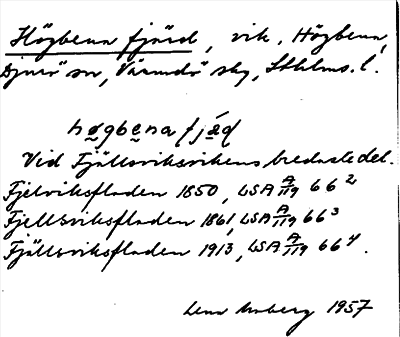 Högbena fjärd, vik, Högbena,
Djurö sn, Värmdö skg, Sthlms. l.
högbena fjäd
Vid Fjällsviksvikens bredaste del.
Fjelviksfladen 1850, LSA A/119 66²
Fjellsviksfladen 1861, LSA A/119 66³
Fjällsviksfladen 1913, LSA A/119 66⁴.
1957